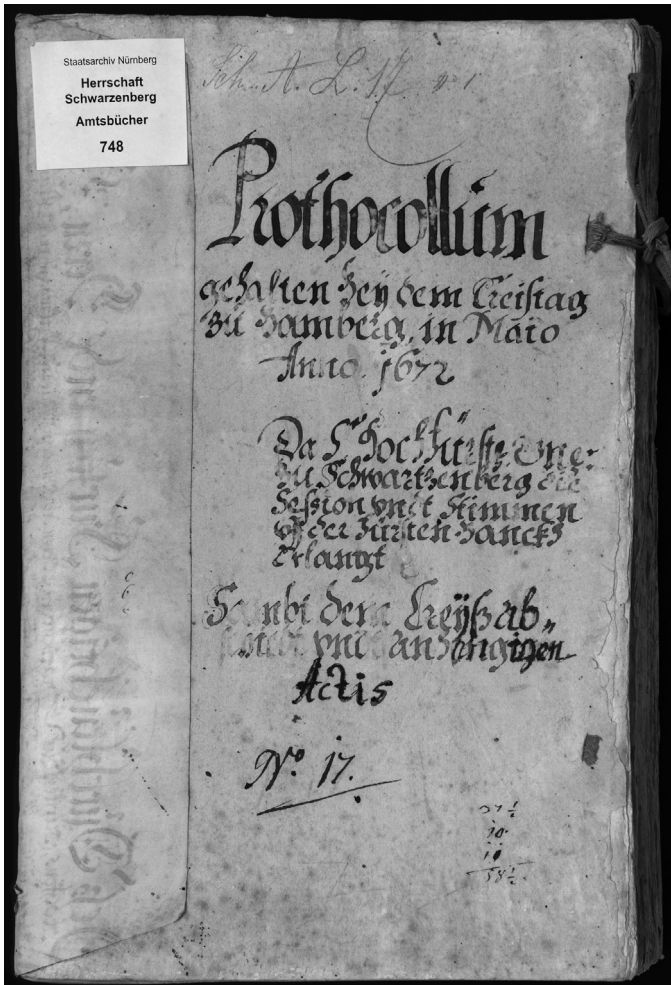 Staatsarchiv Nürnberg
Herrschaft
Schwarzenberg
Amtsbücher
748
L. 17. No 1
Prothocollum
gehalten bey dem Creistag
zu Bamberg, in Maio
Anno 1672
Da Hochfürstl. Gne:
zu Schwartzenberg die
Session vndt Stimmen
vf der Fürsten-Banckh
Erlangt
Sambt dem Creyß ab„
schiedt vndt anhängigen
Actis
No. 17.
10
10
58½